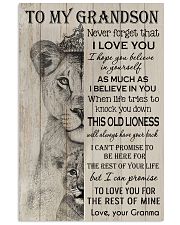 TO MY GRANDSON
Never forget that
I LOVE YOU
I hope you believe
in yourself
AS MUCH AS
I BELIEVE IN YOU
When life tries to
knock you down
THIS OLD LIONESS
will always have your back
I CAN'T PROMISE
TO BE HERE FOR
THE REST OF YOUR LIFE
but I can promise
TO LOVE YOU FOR
THE REST OF MINE
Love, your Granma